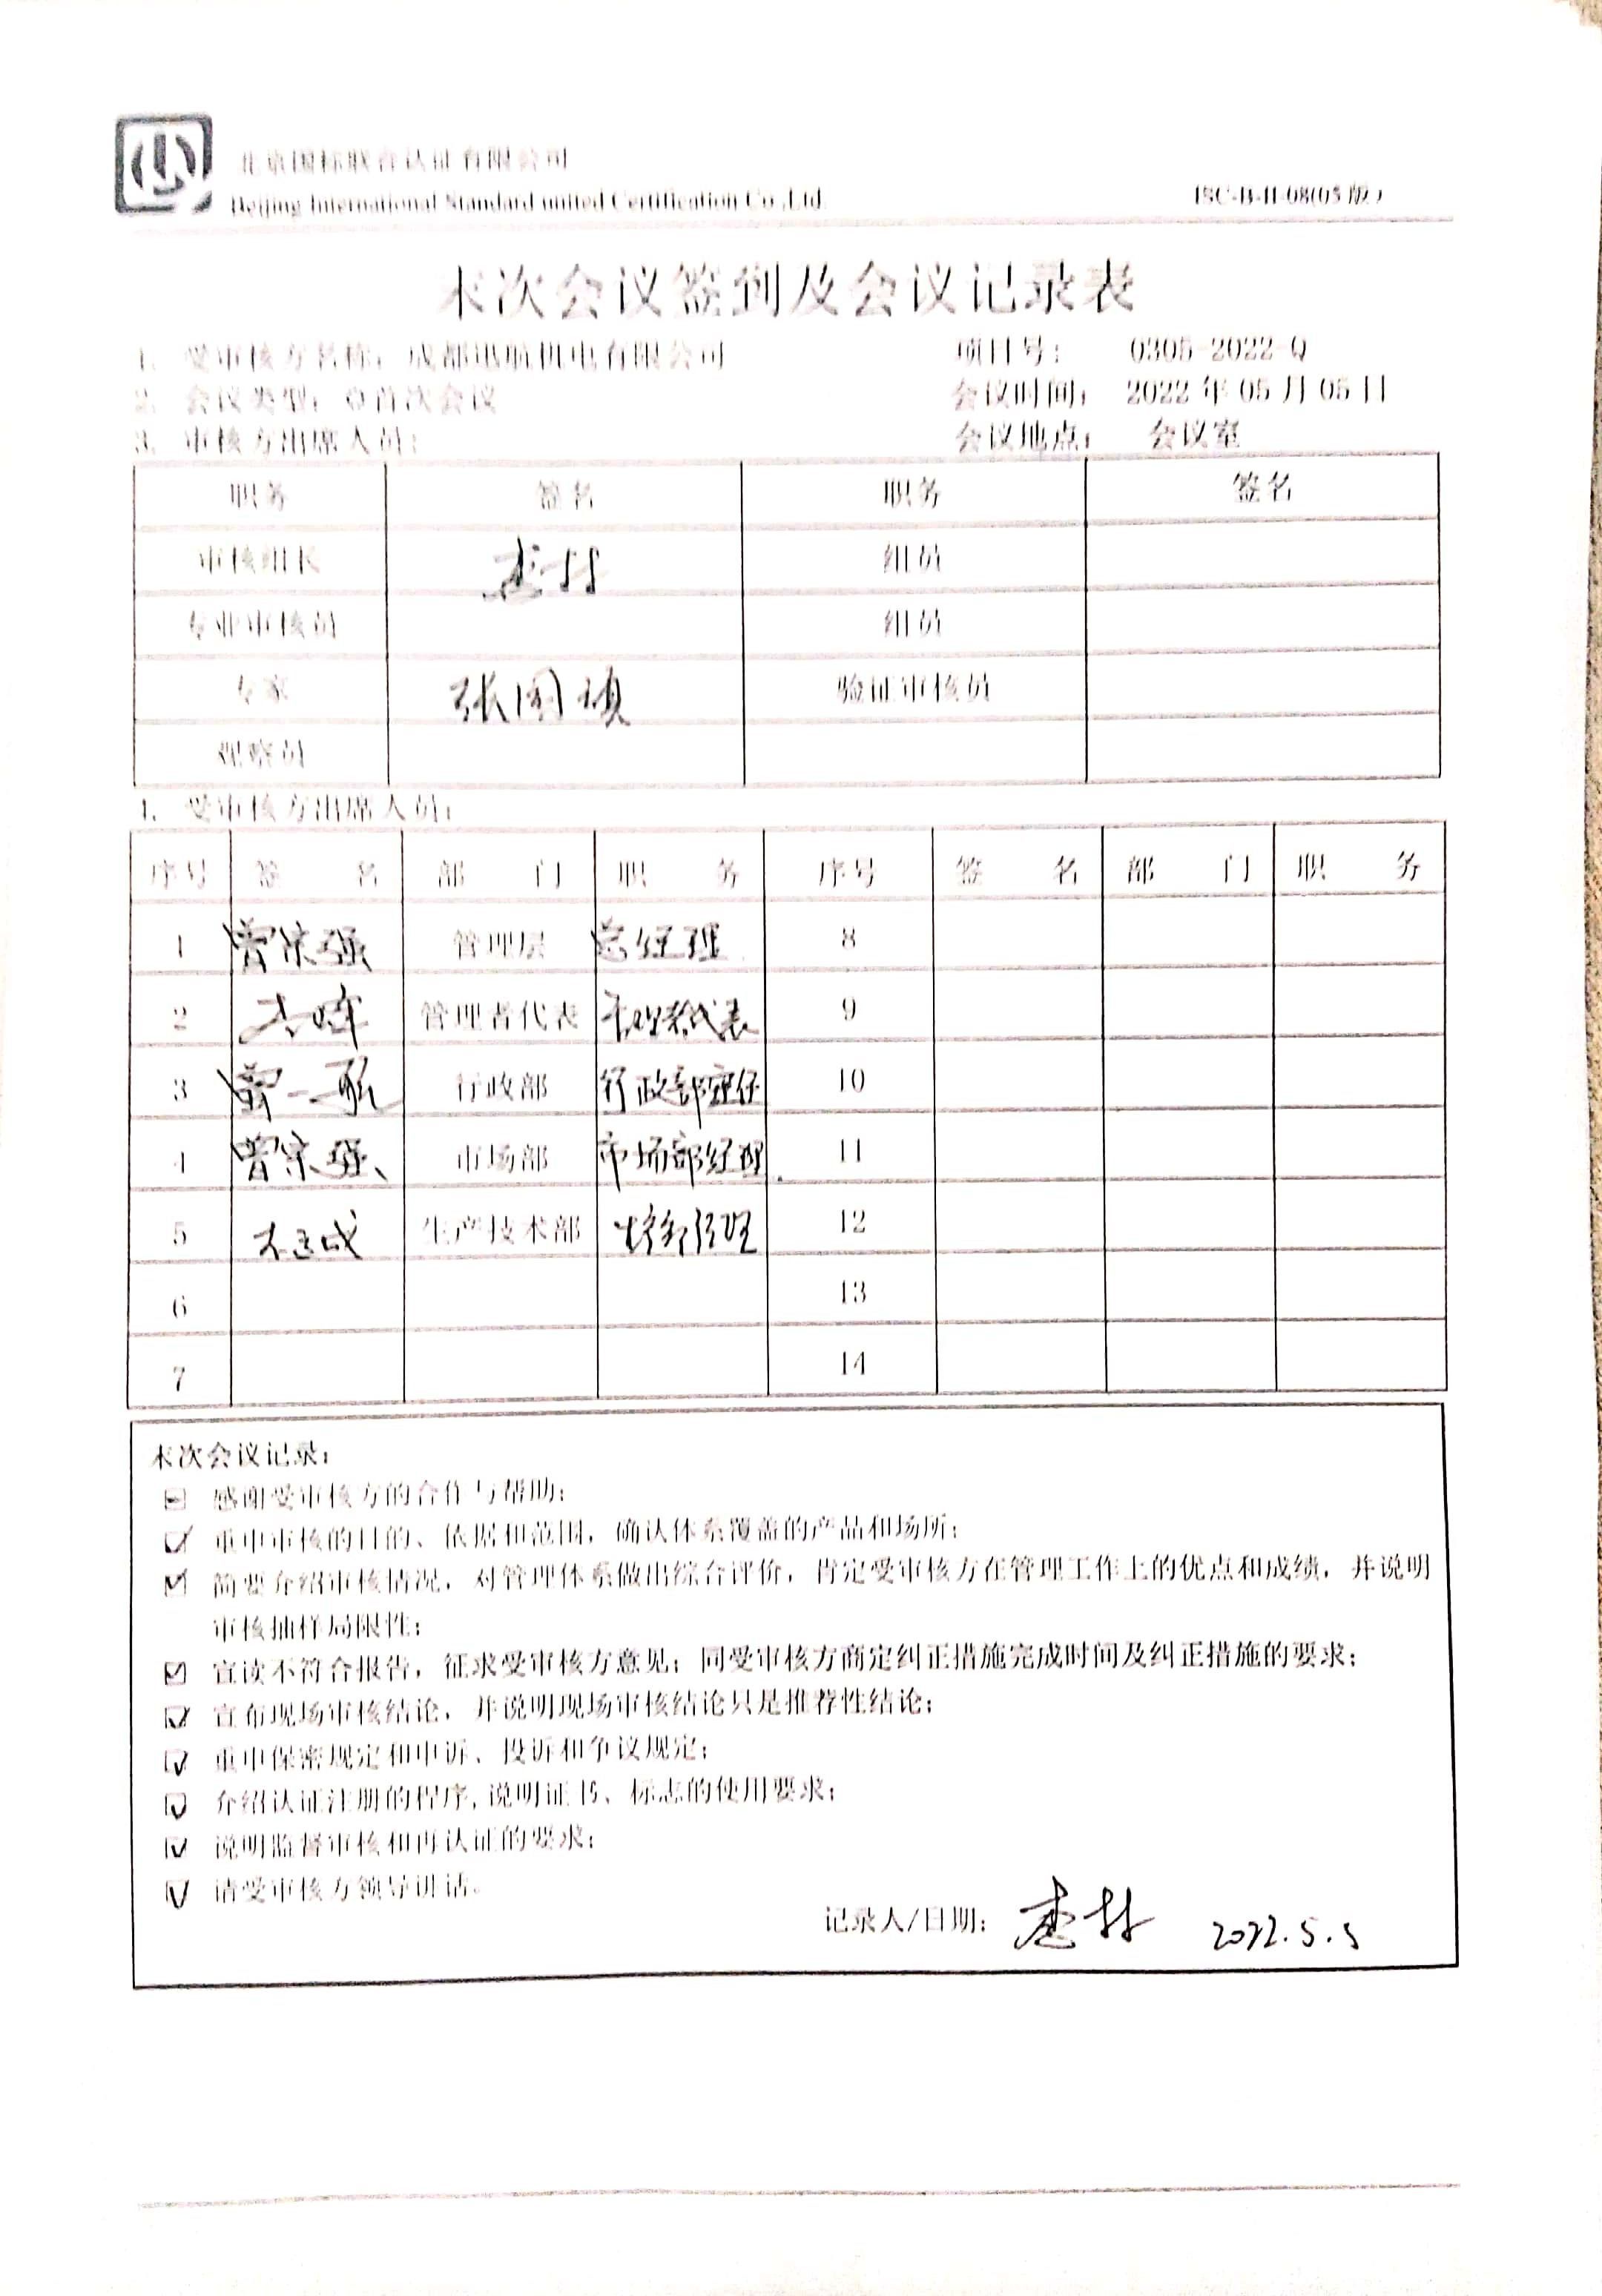 北京国标联合认证有限公司
Beijing International Standard united Certification Co.,Ltd.
ISC-B-II-08(05版)
末次会议签到及会议记录表
1. 受审核方名称：成都迅航机电有限公司 项目号： 0305-2022-Q
2. 会议类型：首次会议 会议时间： 2022 年 05 月 05 日
3. 审核方出席人员： 会议地点： 会议室
职务 签名 职务 签名
审核组长 组员
专业审核员 组员
专家 张国祯 验证审核员
观察员
4. 受审核方出席人员：
序号 签 名 部 门 职 务 序号 签 名 部 门 职 务
1 曾宗强 管理层 总经理 8
2 管理者代表 管理者代表 9
3 行政部 行政部主任 10
4 曾宗强 市场部 市场部经理 11
5 生产技术部 12
6 13
7 14
末次会议记录：
感谢受审核方的合作与帮助；
☑ 重申审核的目的、依据和范围，确认体系覆盖的产品和场所；
☑ 简要介绍审核情况，对管理体系做出综合评价，肯定受审核方在管理工作上的优点和成绩，并说明
审核抽样局限性；
☑ 宣读不符合报告，征求受审核方意见；同受审核方商定纠正措施完成时间及纠正措施的要求；
☑ 宣布现场审核结论，并说明现场审核结论只是推荐性结论；
☑ 重申保密规定和申诉、投诉和争议规定；
☑ 介绍认证注册的程序,说明证书、标志的使用要求；
☑ 说明监督审核和再认证的要求；
☑ 请受审核方领导讲话。
记录人/日期： 2022.5.5